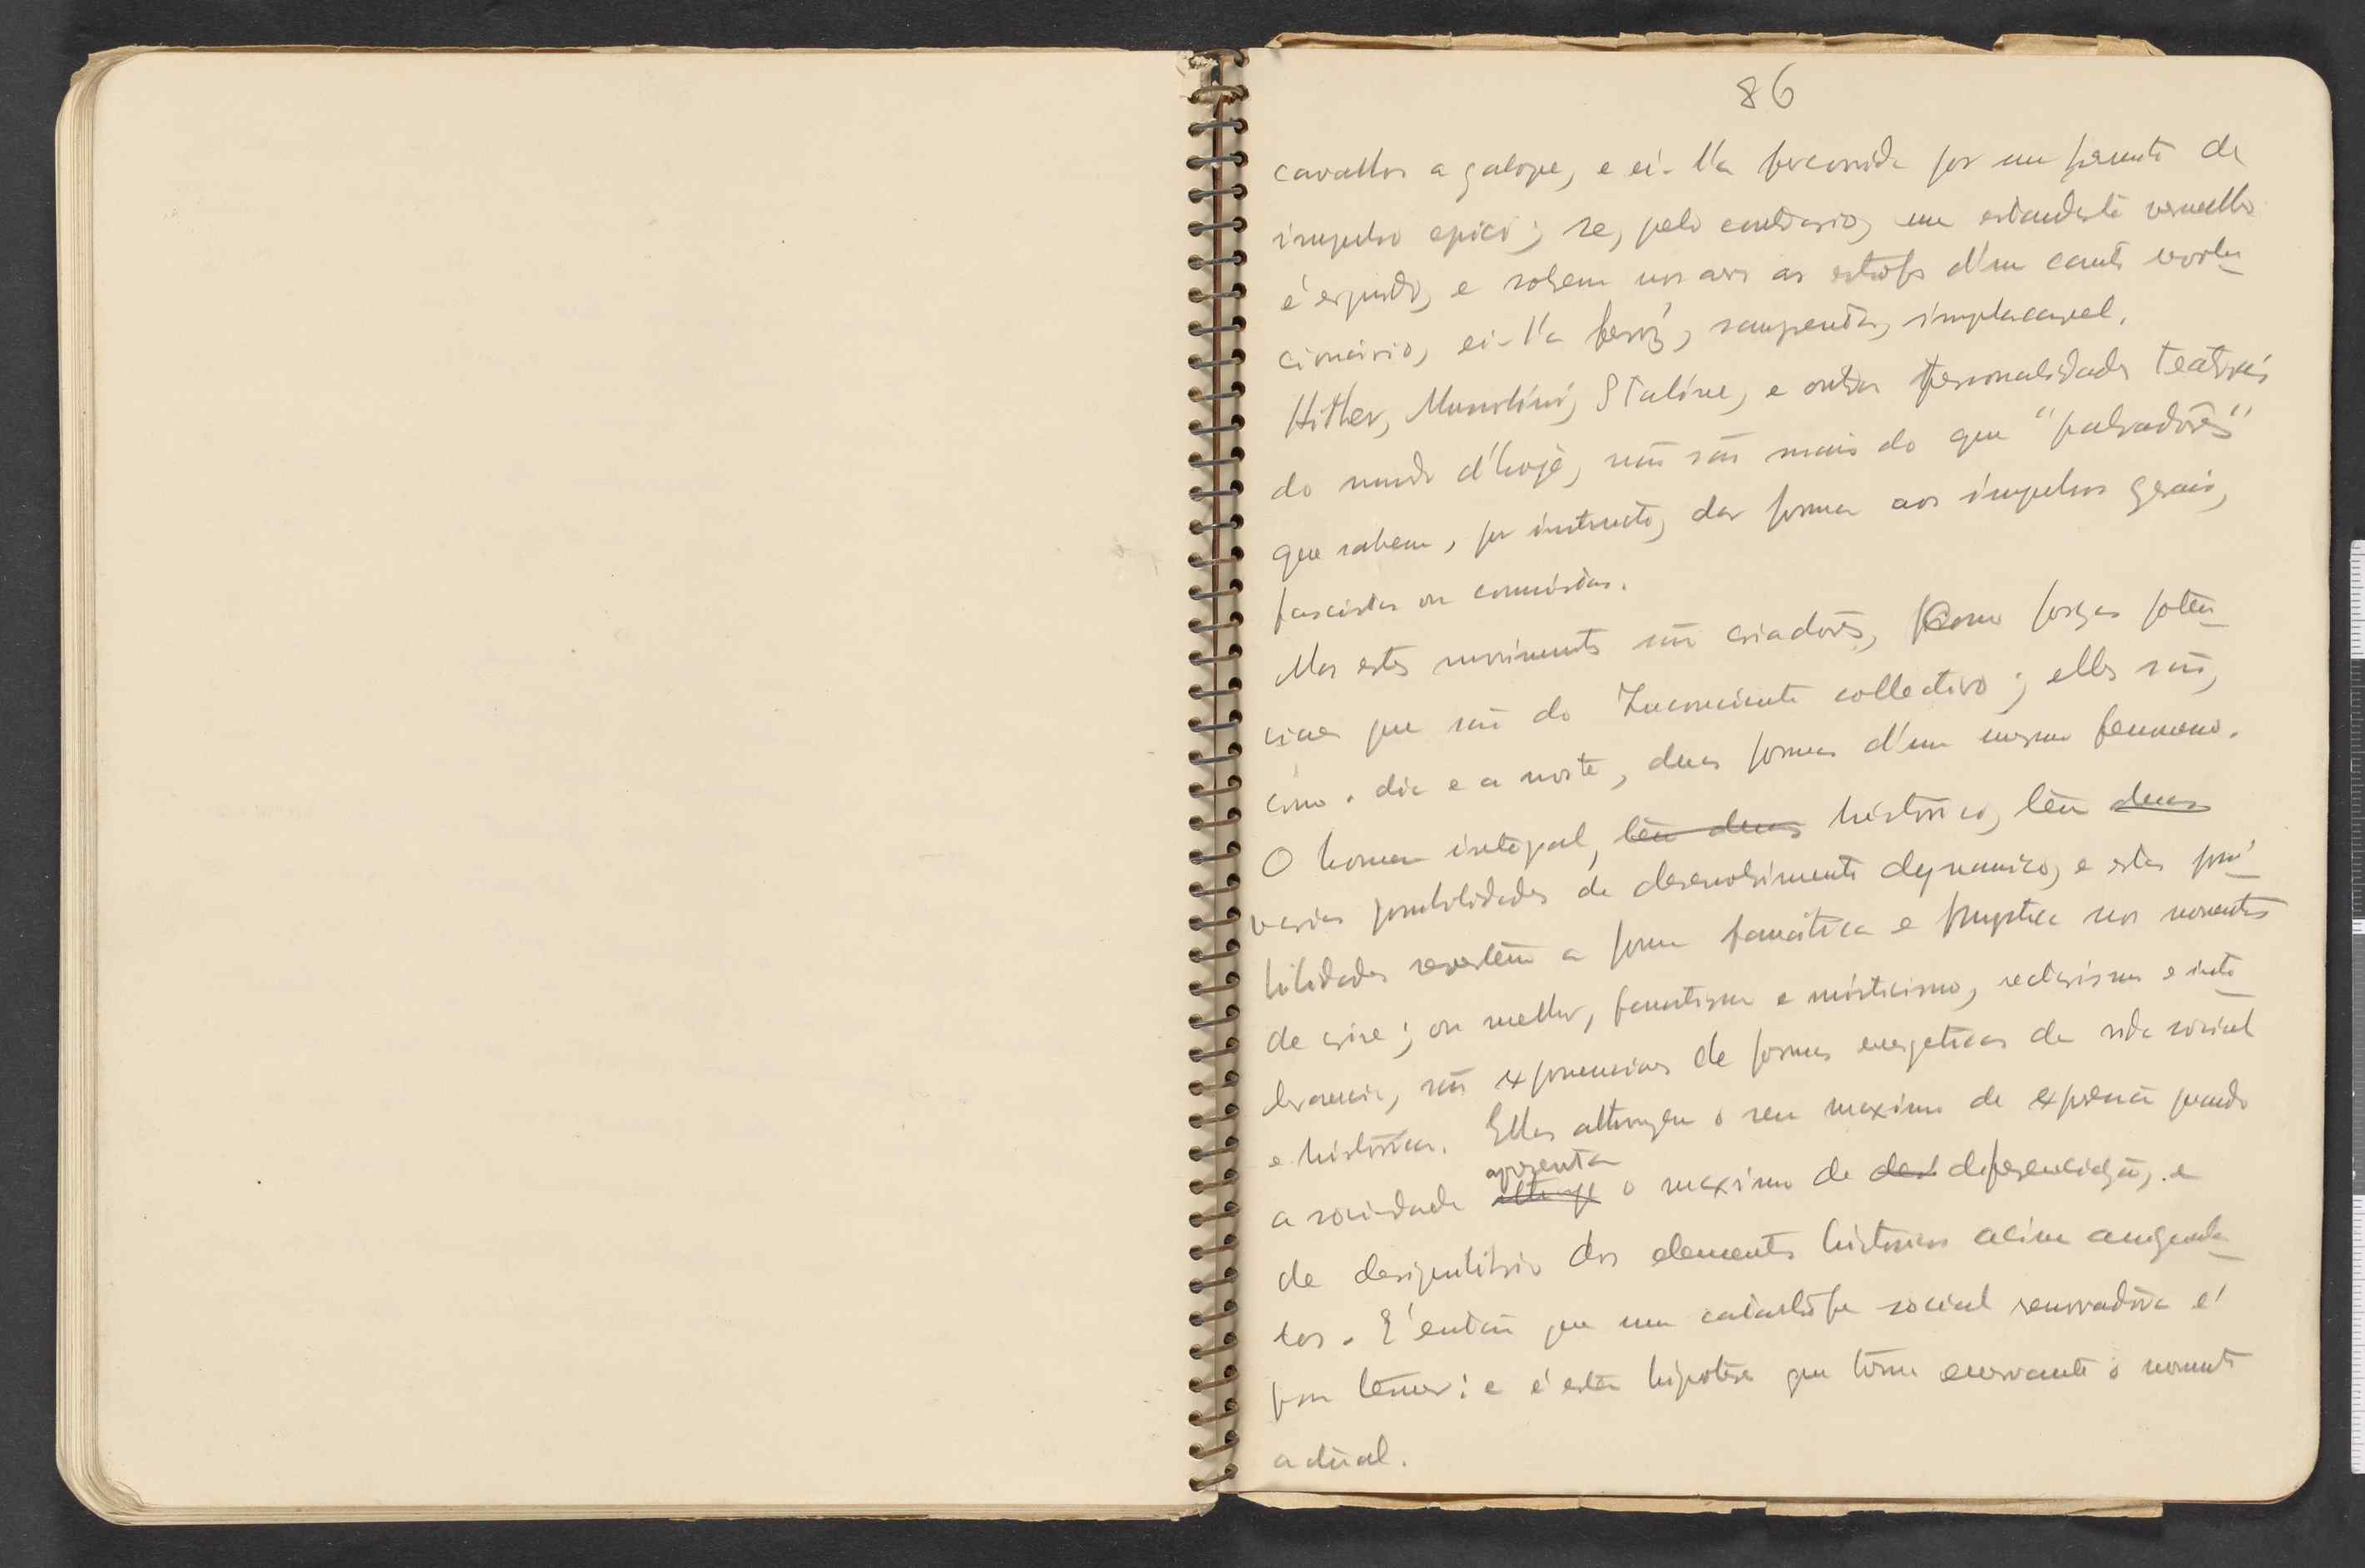 86
cavallos a galope, e ei-l'a percorrida por um fremito de
impulso epico; se, pelo contrario, um estandarte vermelho
é erguido, e sobem nos ares as estrofes d'um canto revolu-
cionário, ei-l'a feroz, sangrenta, implacavel.
Hitler, Mussolini, Staline, e outras personalidades teatrais
do mundo d'hoje, não são mais do que "palradôres"
que sabem, por instincto, dar forma aos impulsos gerais,
fascistas ou comunistas.
Mas estes movimentos são criadores, como forças poten-
ciaes que são do Inconsciente collectivo; elles são,
como o dia e a noite, duas formas d'um mesmo fenomeno.
O homem integral, tem duas historico, tem duas
varias possibilidades de desenvolvimento dynamico, e estas possi-
bilidades revestem a forma fanática e mystica nos momentos
de crise; ou melhor, fanatismo e misticismo, sectarismo e into-
lerancia, são exponenciaes de formas energeticas da vida social
e historica. Ellas attingem o seu maximo de expressão quando
a sociedade attinge apresenta o maximo de des diferenciação, e
de desiquilibrio dos elementos historicos acima aug
tos. É então que uma catastrofe social renovadora é
para temer: e é esta hipotese que torna enervante o momento
actual.